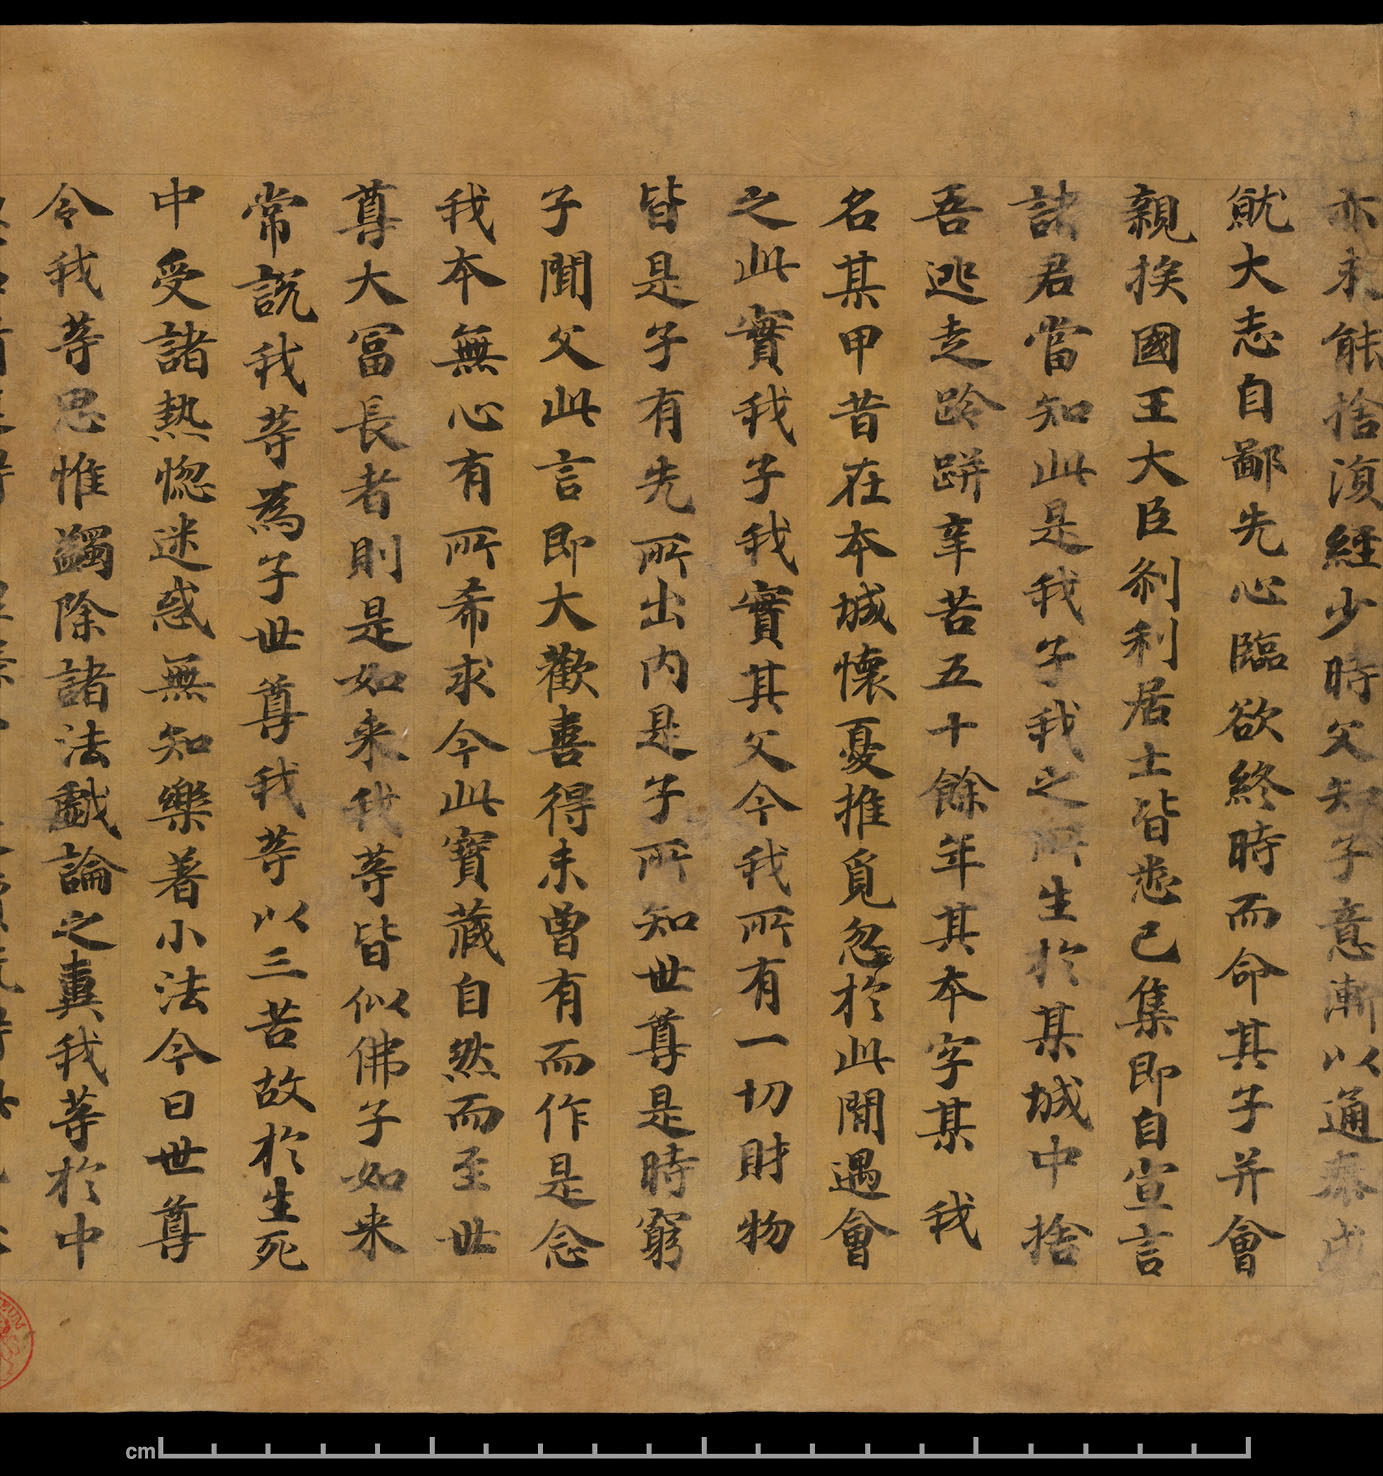 亦未能捨湏經少時父知子意漸以通泰成
就大志自鄙先心臨欲終時而命其子并會
親挨國王大臣剎利居士皆悉已集即自宣言
諸君當知此是我子我之所生於某城中捨
吾逃走跉跰辛苦五十餘年其本字某我
名某甲昔在本城懷憂推覓忽於此間遇會
之此實我子我實其父今我所有一切財物
皆是子有先所出内是子所知世尊是時窮
子聞父此言即大歡喜得未曾有而作是念
我本無心有所希求今此寶藏自然而至世
尊大冨長者則是如来我等皆似佛子如来
常說我等為子世尊我等以三苦故於生死
中受諸熱惚迷惑無知樂著小法今日世尊
令我等思惟蠲除諸法戲論之糞我等於中